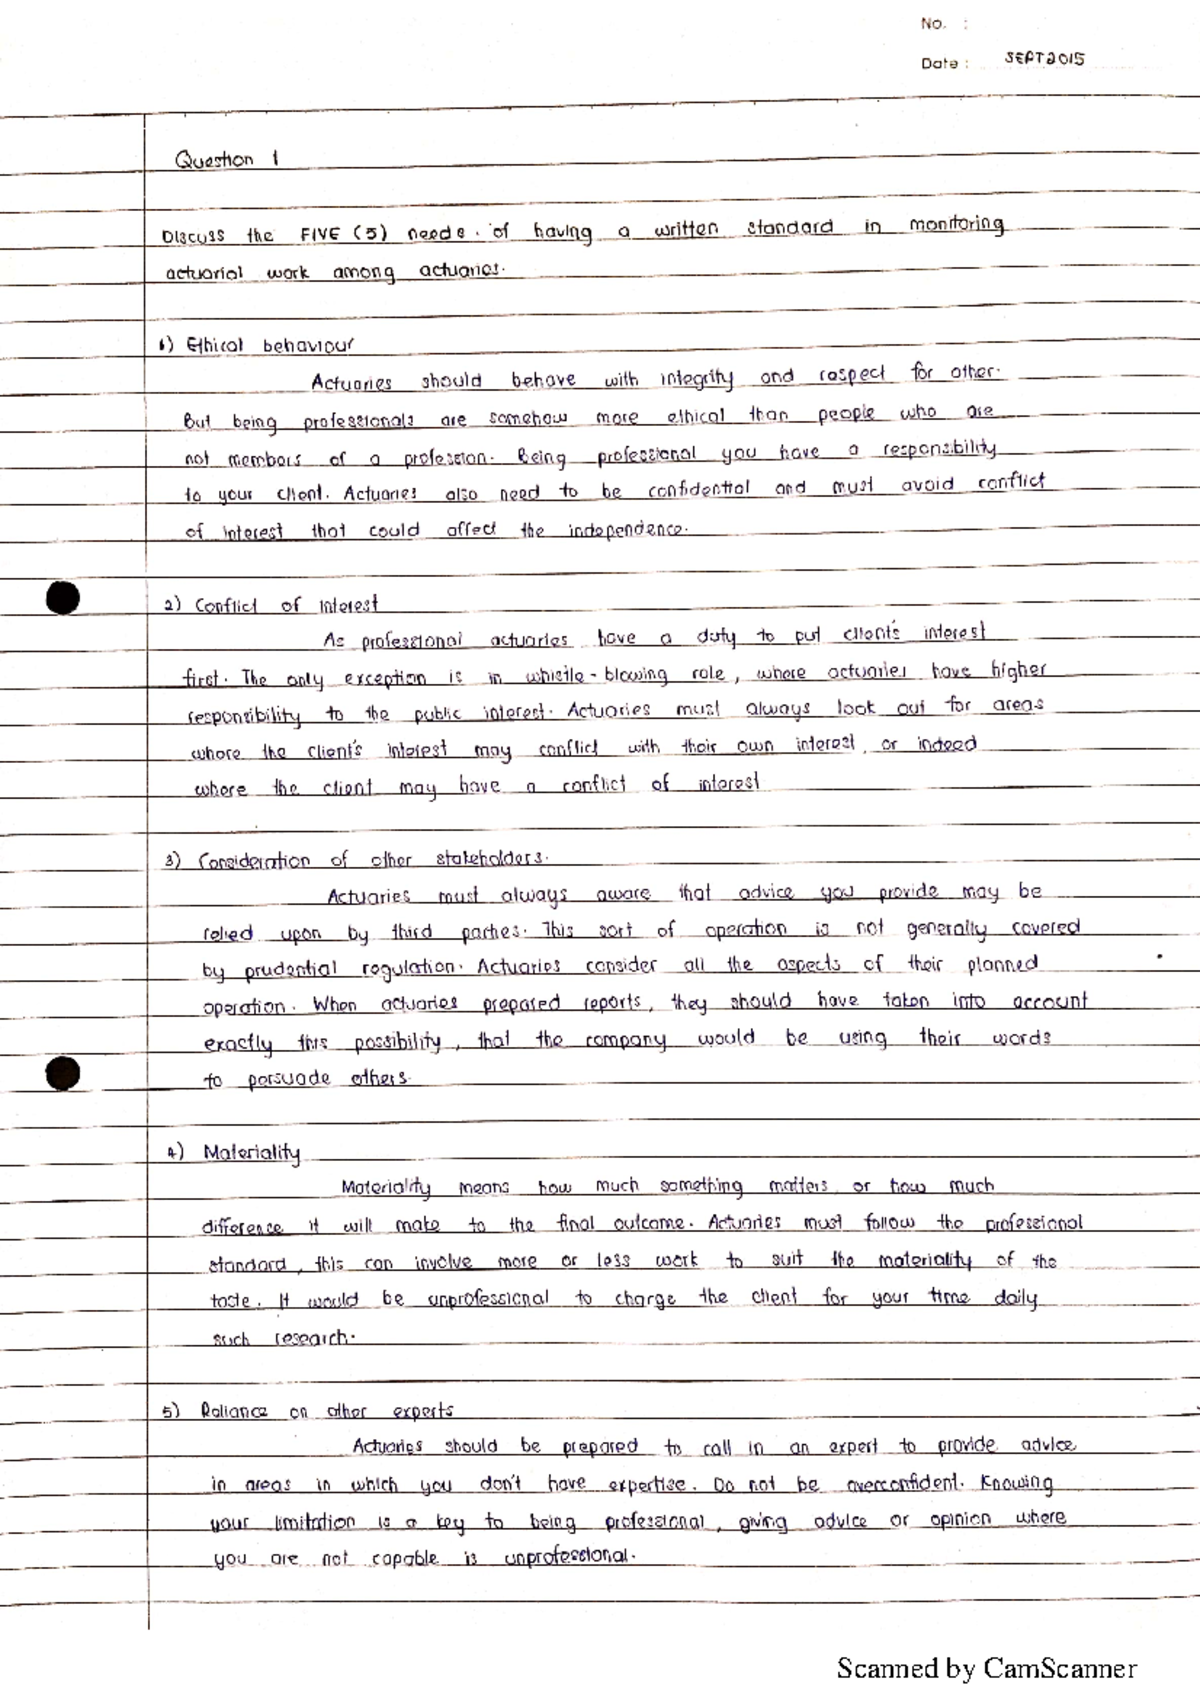 No. :
Date : SEPT 2015
Question 1
Discuss the FIVE (5) needs of having a written standard in monitoring
actuarial work among actuaries.
1) Ethical behaviour
Actuaries should behave with integrity and respect for other.
But being professionals are somehow more ethical than people who are
not members of a profession. Being professional you have a responsibility
to your client. Actuaries also need to be confidential and must avoid conflict
of interest that could affect the independence.
2) Conflict of interest
As professional actuaries have a duty to put client's interest
first. The only exception is in whistle-blowing role, where actuaries have higher
responsibility to the public interest. Actuaries must always look out for areas
where the client's interest may conflict with their own interest, or indeed
where the client may have a conflict of interest
3) Consideration of other stakeholders.
Actuaries must always aware that advice you provide may be
relied upon by third parties. This sort of operation is not generally covered
by prudential regulation. Actuaries consider all the aspects of their planned
operation. When actuaries prepared reports, they should have taken into account
exactly this possibility, that the company would be using their words
to persuade others.
4) Materiality
Materiality means how much something matters, or how much
difference it will make to the final outcome. Actuaries must follow the professional
standard, this can involve more or less work to suit the materiality of the
taste. It would be unprofessional to charge the client for your time daily
such research.
5) Reliance on other experts
Actuaries should be prepared to call in an expert to provide advice
in areas in which you don't have expertise. Do not be overconfident. Knowing
your limitation is a key to being professional, giving advice or opinion where
you are not capable is unprofessional.
Scanned by CamScanner